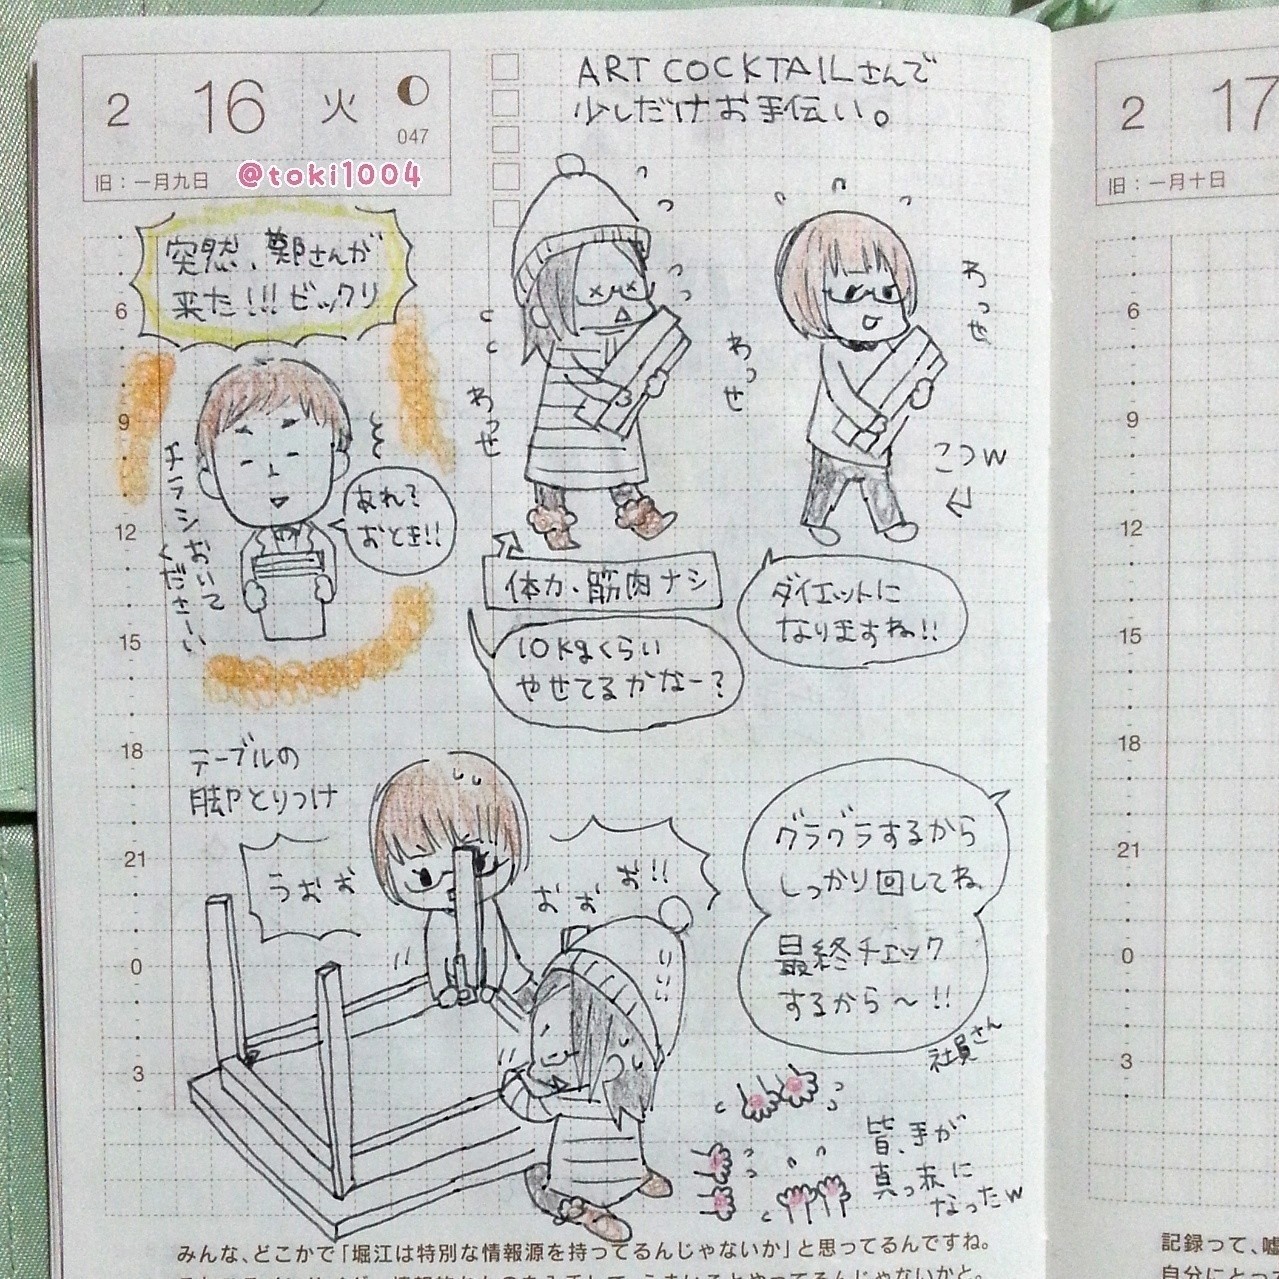 2 16 火
047
旧：一月九日
@toki1004
ART COCKTAILさんで
少しだけお手伝い。
突然、鄭さんが
来た!!!ビックリ
あれ?
おとき!!
チラシおいて
くださーい
わっせ
わっせ
わっせ
こつw
体力、筋肉ナシ
10kgくらい
やせてるかなー?
ダイエットに
なりますね!!
テーブルの
脚とりつけ
うおお
おおお!!
グラグラするから
しっかり回してね
最終チェック
するから〜!!
社員さん
皆、手が
真っ赤に
なったw
6
9
12
15
18
21
0
3
みんな、どこかで「堀江は特別な情報源を持ってるんじゃないか」と思ってるんですね。
2 17
旧：一月十日
6
9
12
15
18
21
0
3
記録って、嘘